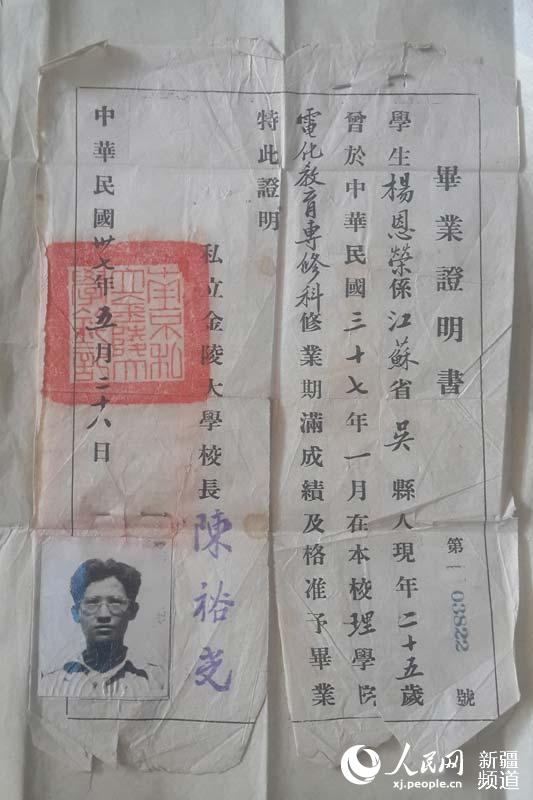 畢業證明書
第 03822 號
學生楊恩榮係江蘇省吳縣人現年二十五歲
曾於中華民國三十七年一月在本校理學院
電化教育專修科修業期滿成績及格准予畢業
特此證明
私立金陵大學校長陳裕光
中華民國卅七年五月二十八日
南京私
立金陵大
學
人民网 新疆频道
xj.people.cn